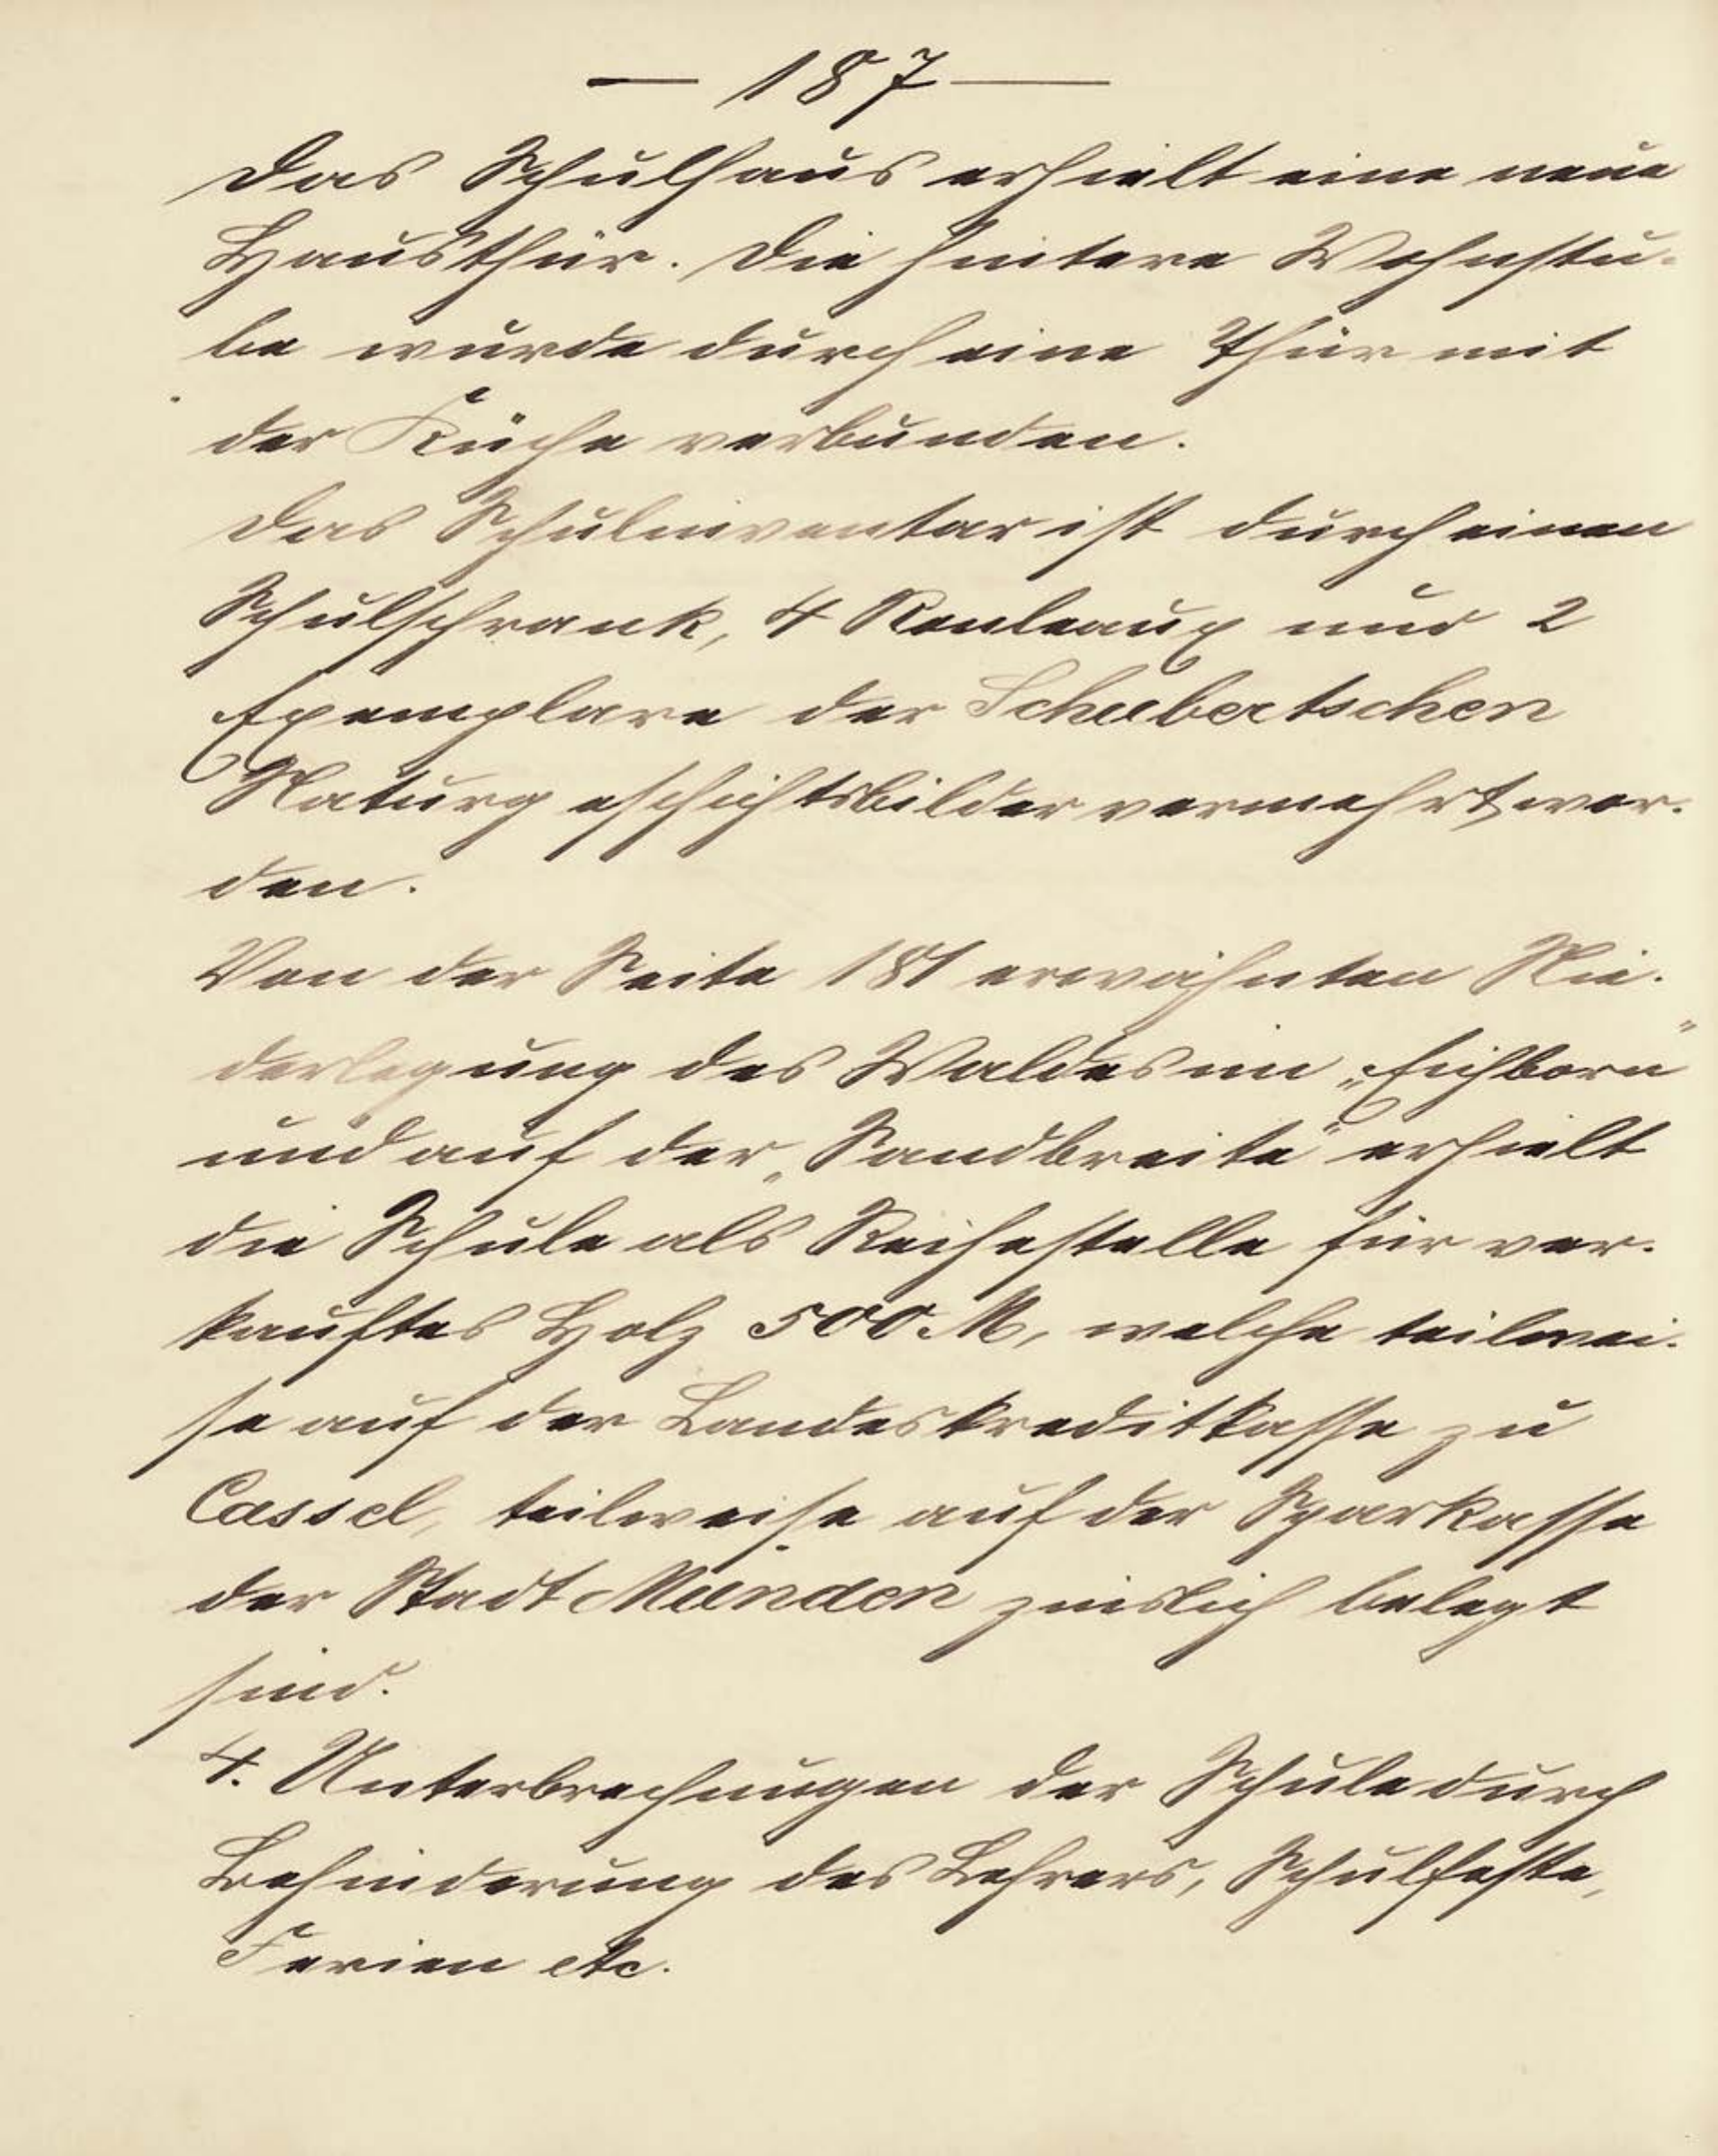 — 187 —
Das Schulhaus erhielt eine neue
Hausthür. Die hintere Wohnstu-
be wurde durch eine Thür mit
der Küche verbunden.
Das Schulinventar ist durch einen
Schulschrank, 4 Rouleaux und 2
Exemplare der Schubertschen
Naturgeschichtsbilder vermehrt wor-
den.
Von der Seite 181 erwähnten Nie-
derlegung des Waldes im „Eichborn“
und auf der „Sandbreite“ erhielt
die Schule als Reihestelle für ver-
kauftes Holz 500 M, welche teilwei-
se auf der Landeskreditkasse zu
Cassel, teilweise auf der Sparkasse
der Stadt Münden zinslich belegt
sind.
4. Unterbrechungen der Schule durch
Behinderung des Lehrers, Schulfeste,
Ferien etc.